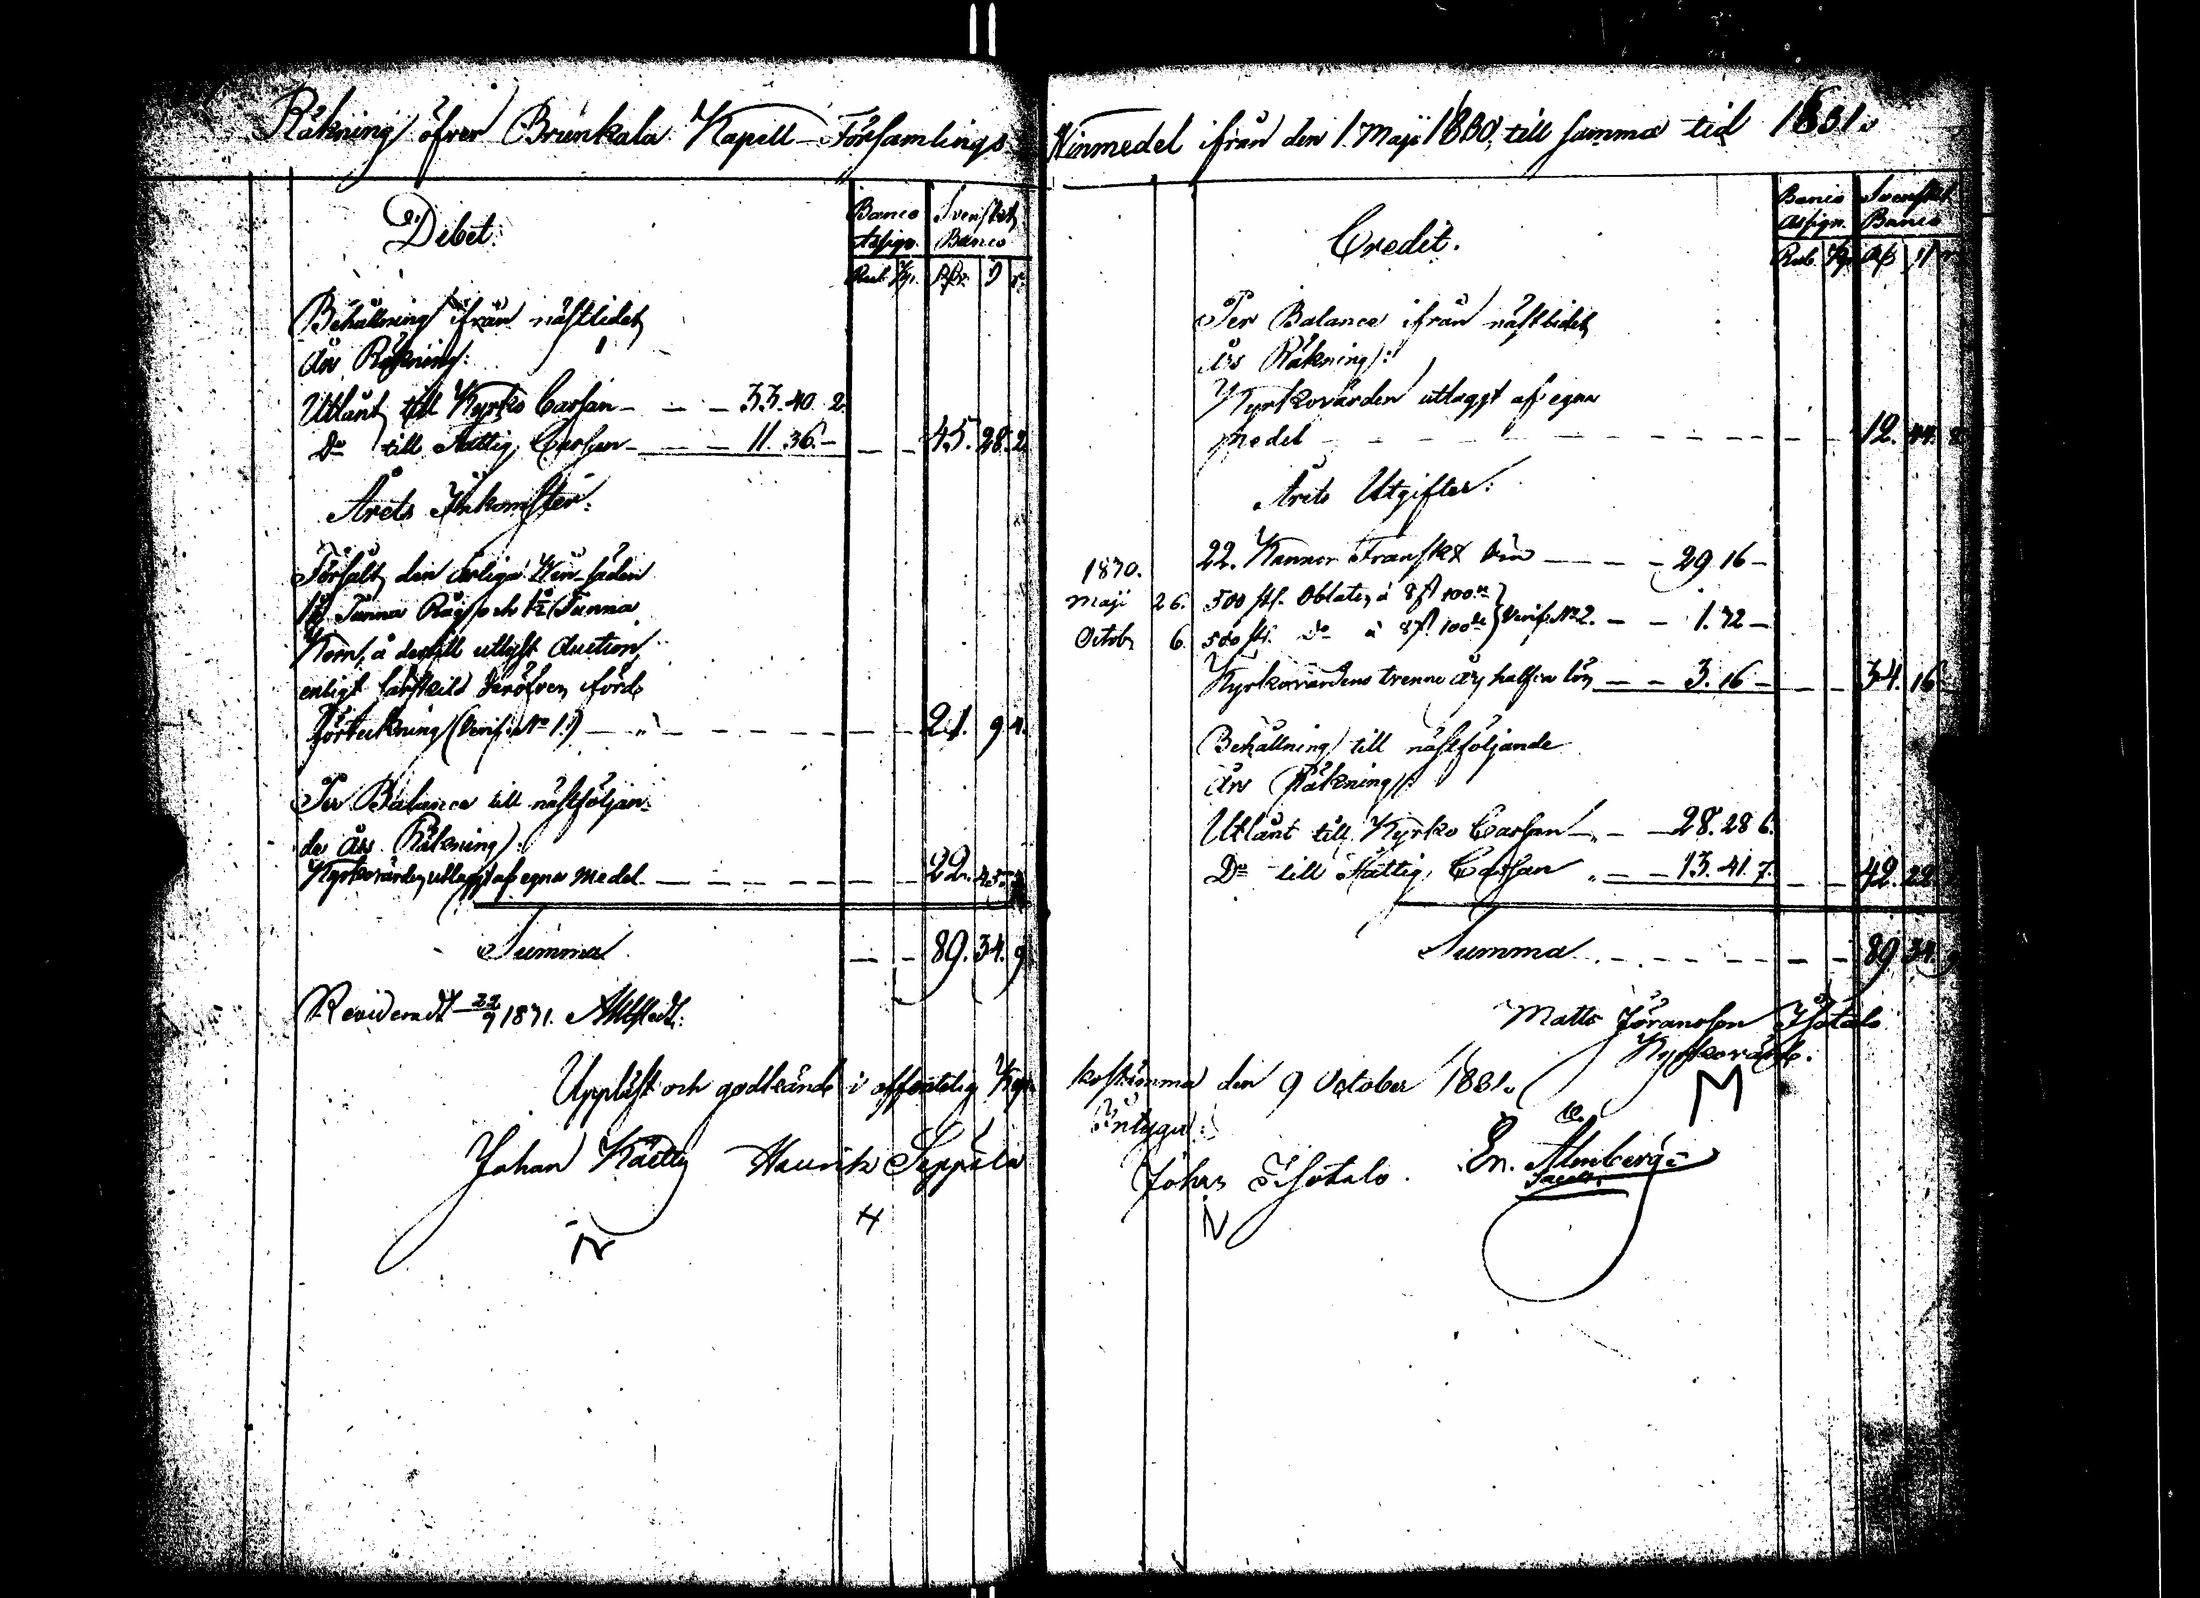 Räkning öfver Brunkala Kapell-Församlings
Debet.
Banco Assign. Svenskt Banco
Rub. Kp. Rdr. ß r.
Behållning ifrån nästlidet
års Räkning:
Utlånt till Kyrko Cassan - - - 33. 40. 2.
Do till Fattig Cassan - - - 11. 36. - - - 45. 28. 2
Årets Inkomster:
Försålt den årliga Win-säden
Tunna Råg och 1½ Tunna
Korn, å dertill utlyst Auction,
enligt särskild deröfver förd
förteckning (Verif. No 1.) - - - 21. 9 4.
Per Balance till nästföljan-
de års Räkning:
Kyrkovärden utlaggt af egna medel - - - 22. 45.
Summa - - 89. 34. 9
Revideradt 22/9 1871. Ahlstedt.
Upplyst och godkändt i offentelig Kyr-
Johan Kättÿ Henrik Seppälä
Winmedel ifrån den 1. Maji 1830, till samma tid 1831.
Credit.
Banco Assign. Svenskt Banco
Rub. Kp. Rdr
Per Balance ifrån nästlidet
års Räkning:
Kyrkovärden utlaggt af egna
medel - - - 12. 44. 8
Årets Utgifter:
1830. 22. Kannor Franskt Vin - - - 29 16 -
Maji 26. 500 st. Oblater, à 8 ß 100de
Octobr 6. 500 st. Do à 8 ß 100de Verif. No 2. - - 1. 32 -
Kyrkovärdens trenne års halfva lön - - 3. 16 - - - 34. 16
Behållning till nästföljande
års Räkning:
Utlånt till Kyrko Cassan - - - 28. 28 6.
Do till Fattig Cassan - - - 13. 41. 7. - - 42. 22
Summa - - - 89 34. 9
Matts Göransson Isotalo
Kyrkovärd.
M
kostämma den 9 October 1831.
Intyga:
Johan Isotalo. En. Almberg